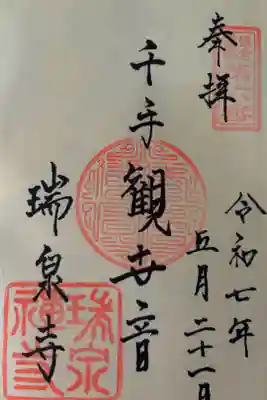 奉拝
令和七年
五月二十一日
千手観世音
瑞泉寺
瑞泉禅寺